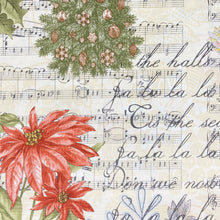 the halls
Fa la la la
'Tis the sea
Fa la la la
Don we now